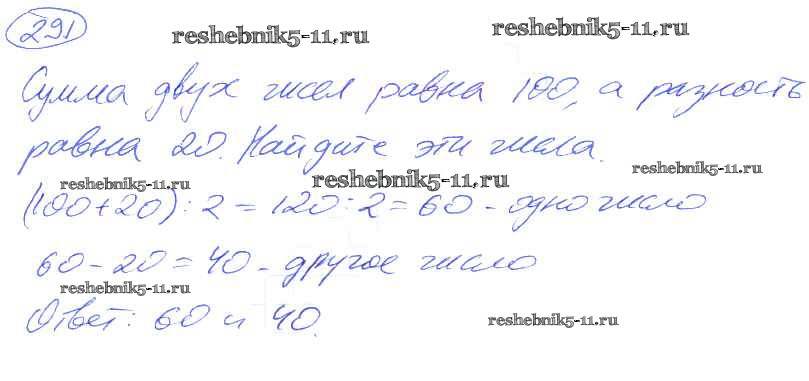 291
reshebnik5-11.ru
reshebnik5-11.ru
Сумма двух чисел равна 100, а разность
равна 20. Найдите эти числа.
reshebnik5-11.ru
reshebnik5-11.ru
reshebnik5-11.ru
(100+20):2=120:2=60 - одно число
60-20=40 - другое число
reshebnik5-11.ru
Ответ: 60 и 40.
reshebnik5-11.ru